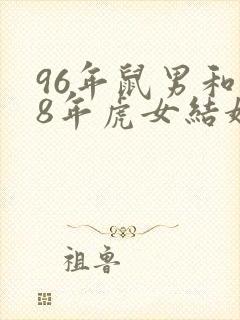 96年鼠男和
8年虎女結
祖鲁